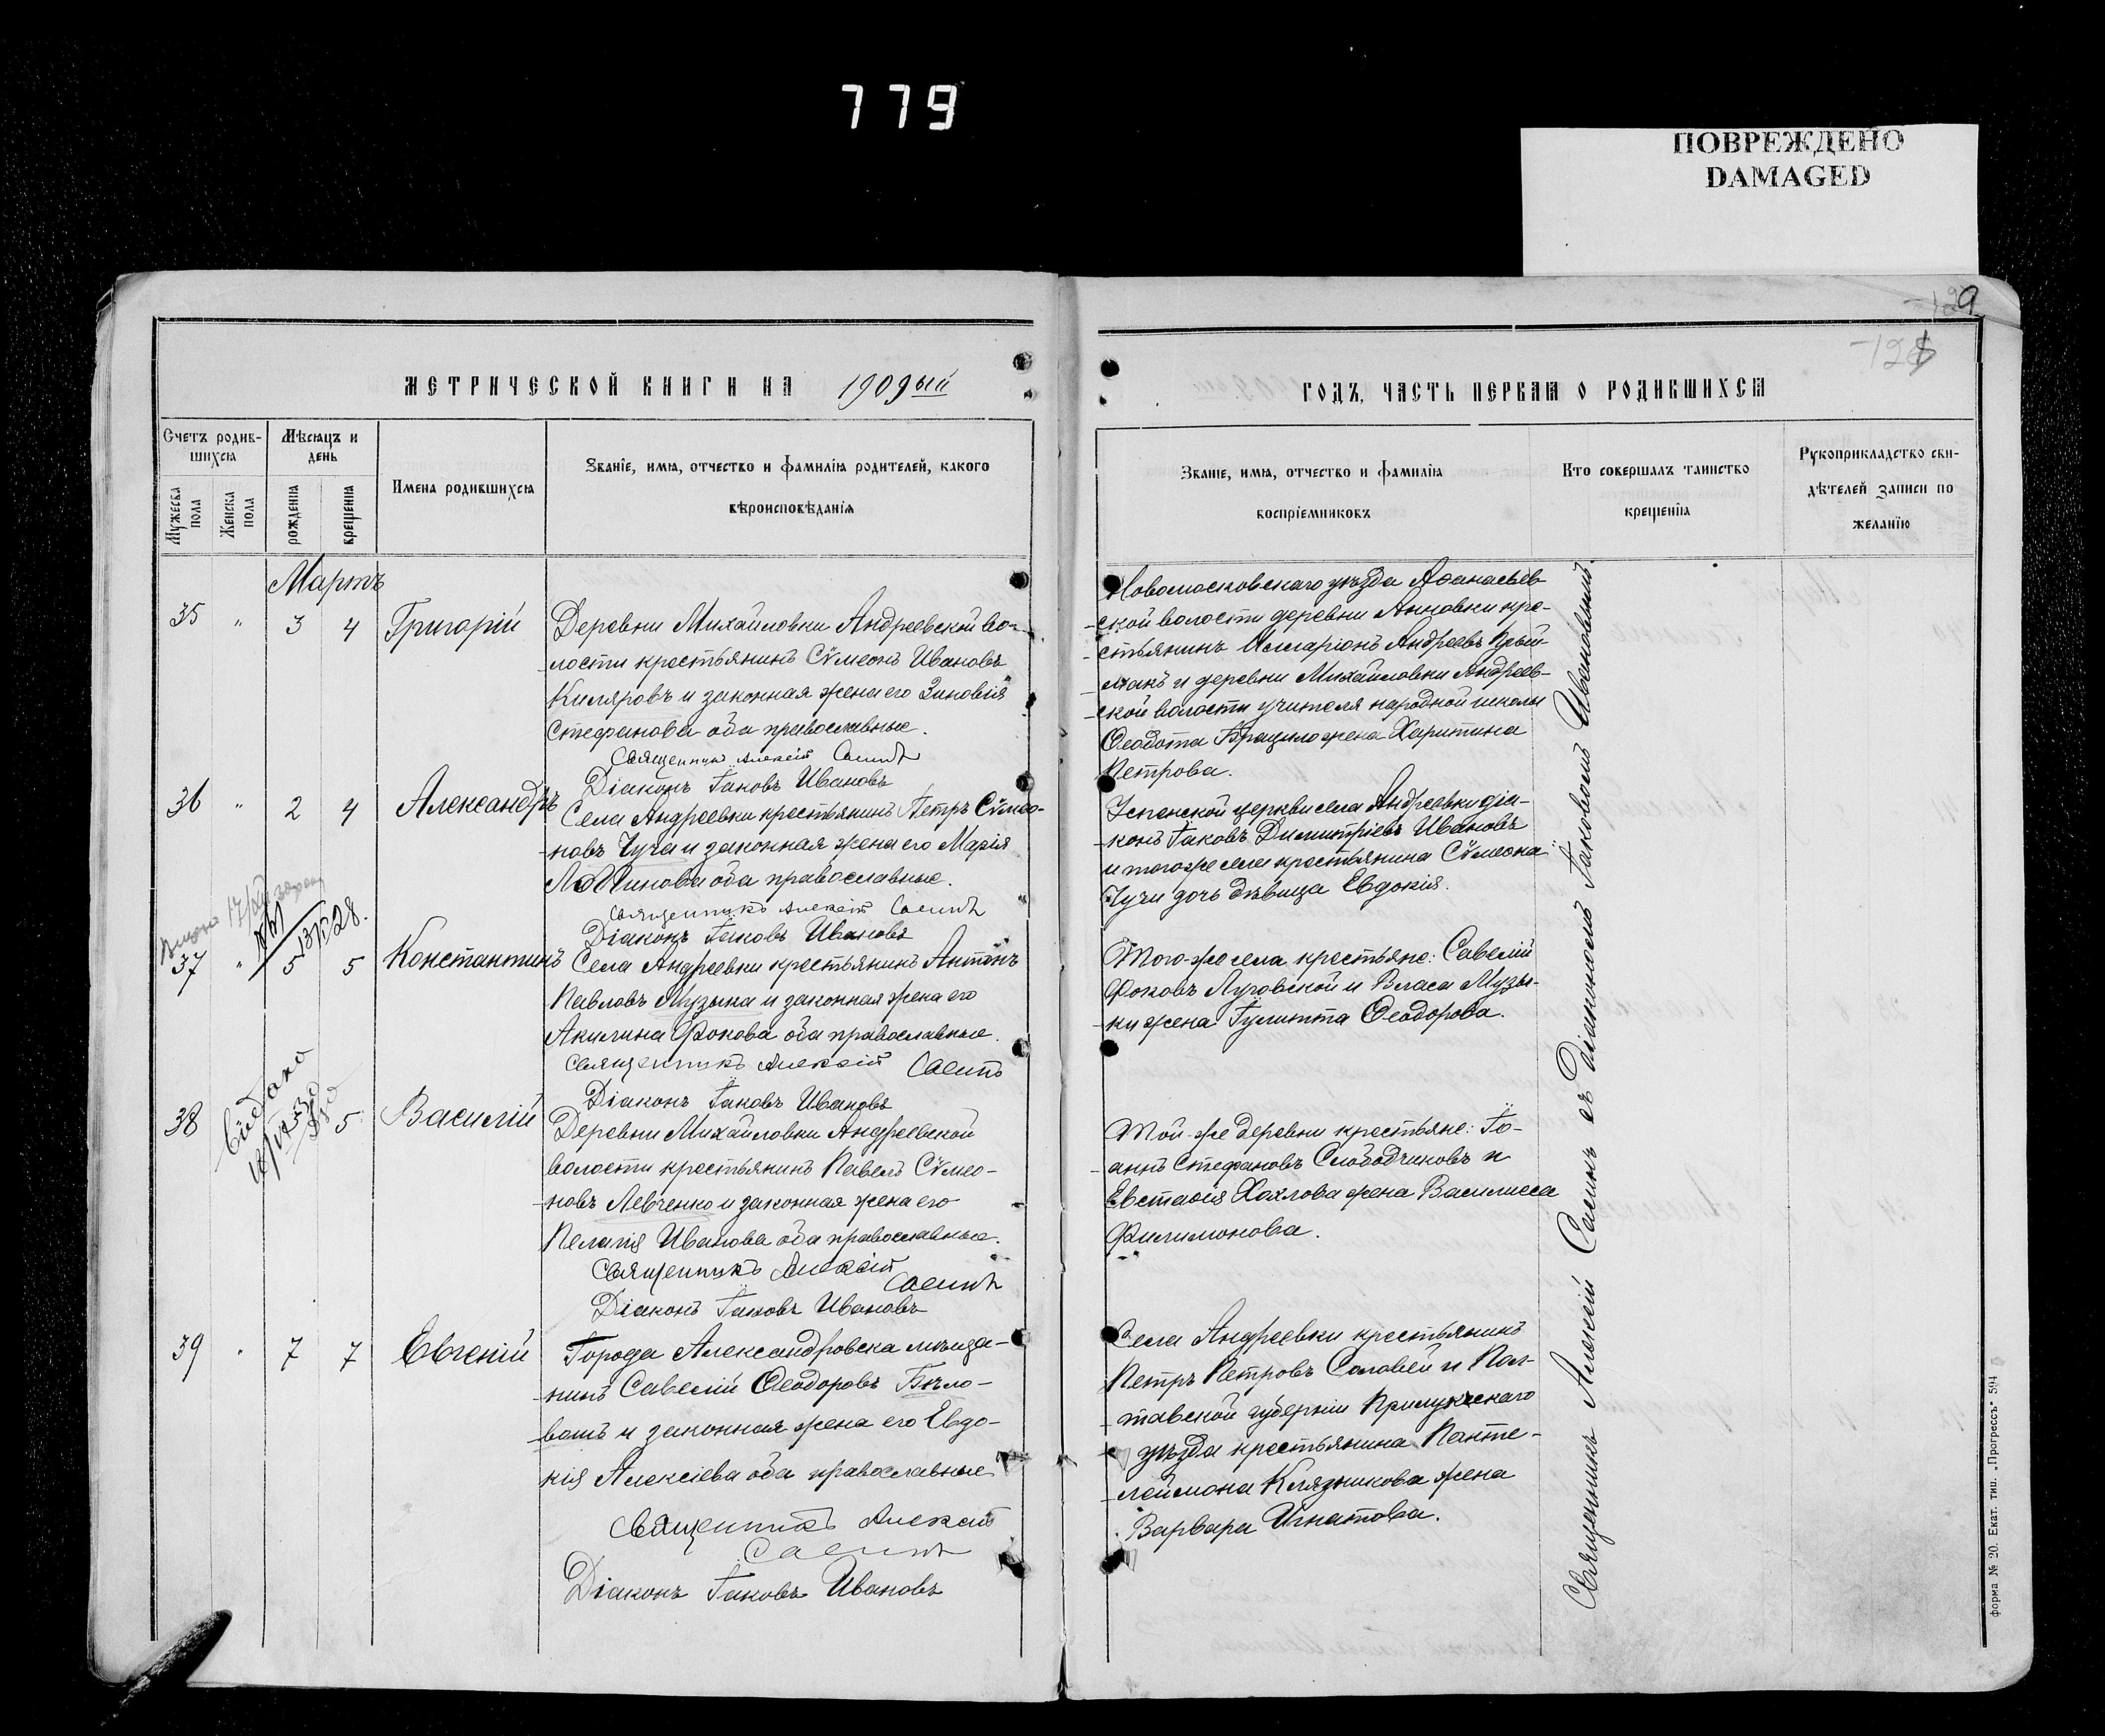 779
ПОВРЕЖДЕНО
DAMAGED
129
МЕТРИЧЕСКОЙ КНИГИ НА 1909ый
ГОДЪ, ЧАСТЬ ПЕРВАЯ О РОДИВШИХСЯ
Счетъ родив-
шихся
Мужеска пола
Женска пола
Мѣсяцъ и день
рожденія
крещенія
Имена родившихся
Званіе, имя, отчество и фамилія родителей, какого
вѣроисповѣданія
Званіе, имя, отчество и фамилія
воспріемниковъ
Кто совершалъ таинство
крещенія
Рукоприкладство сви-
дѣтелей записи по
желанію
Мартъ
35 " 3 4 Григорій
Деревни Михайловки Андреевской во-
лости крестьянинъ Сѵмеонъ Ивановъ
Киляровъ и законная жена его Зиновія
Стефанова оба православные.
Священникъ Алексій Саенъ
Діаконъ Іаковъ Ивановъ
Новомосковскаго уѣзда Аѳанасьев-
ской волости деревни Анновки кре-
стьянинъ Илларіонъ Андреевъ
и деревни Михайловки Андреев-
ской волости учителя народной школы
Ѳеодота жена Харитина
Петрова.
36 " 2 4 Александръ
Села Андреевки крестьянинъ Петръ Сѵмео-
новъ Чуча и законная жена его Марія
Логгинова оба православные.
Священникъ Алексій Саенъ
Діаконъ Іаковъ Ивановъ
Успенской церкви села Андреевки діа-
конъ Іаковъ Димитріевъ Ивановъ
и того же села крестьянина Сѵмеона
Чучи дочь дѣвица Евдокія.
37 " 5 5 Константинъ
Села Андреевки крестьянинъ Антонъ
Павловъ Музыка и законная жена его
Акилина Фокова оба православные.
Священникъ Алексій Саенъ
Діаконъ Іаковъ Ивановъ
Того-же села крестьяне: Савелій
Фоковъ Луговской и Власа Музы-
ки жена Іулитта Ѳеодорова.
38 5 Василій
Видано
Деревни Михайловки Андреевской
волости крестьянинъ Павелъ Сѵмео-
новъ Левченко и законная жена его
Пелагія Иванова оба православные.
Священникъ Алексій
Саенъ
Діаконъ Іаковъ Ивановъ
Той-же деревни крестьяне: Іо-
аннъ Стефановъ Слободчиковъ и
Евстаѳія Хохлова жена Василисса
Филимонова.
39 " 7 7 Евгеній
Города Александровска мѣща-
нинъ Савелій Ѳеодоровъ Бѣло-
вошъ и законная жена его Евдо-
кія Алексіева оба православные
Священникъ Алексій
Саенъ
Діаконъ Іаковъ Ивановъ
Села Андреевки крестьянинъ
Петръ Петровъ Соловей и Пол-
тавской губерніи Прилукскаго
уѣзда крестьянина Панте-
леймона Клязникова жена
Варвара Игнатова.
Священникъ Алексій Саенъ съ Діакономъ Іаковомъ Ивановымъ
Форма № 20. Екат. тип. „Прогрессъ“ 594